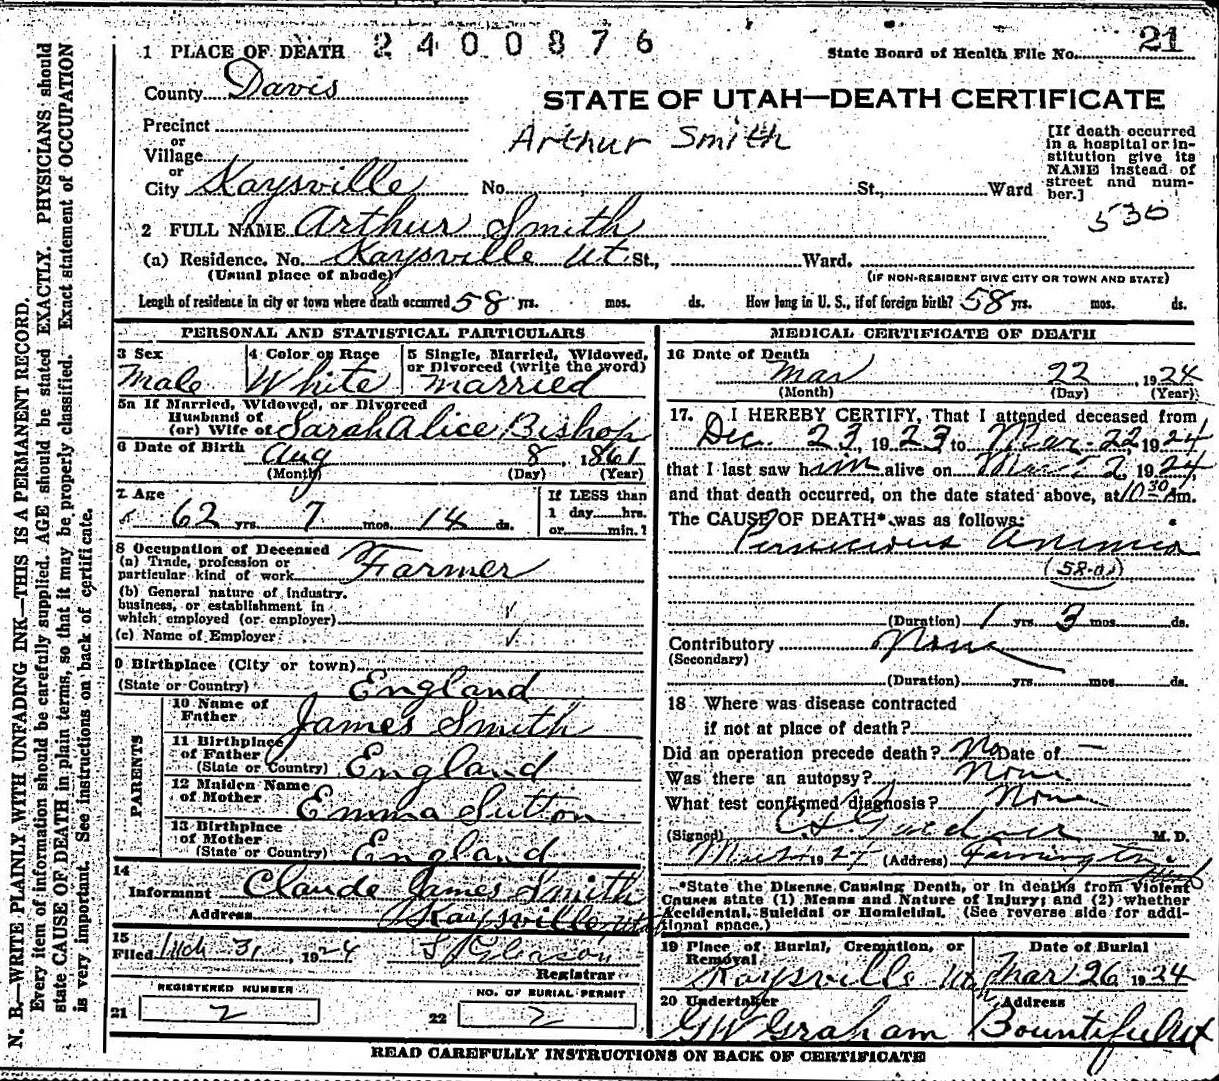 2400876
1 PLACE OF DEATH
State Board of Health File No. 21
County Davis
STATE OF UTAH—DEATH CERTIFICATE
Precinct
or
Village
or
City Kaysville No. St., Ward
Arthur Smith
[If death occurred
in a hospital or in-
stitution give its
NAME instead of
street and num-
ber.]
530
2 FULL NAME Arthur Smith
(a) Residence. No. Kaysville Ut. St., Ward.
(Usual place of abode) (IF NON-RESIDENT GIVE CITY OR TOWN AND STATE)
Length of residence in city or town where death occurred 58 yrs. mos. ds. How long in U. S., if of foreign birth? 58 yrs. mos. ds.
PERSONAL AND STATISTICAL PARTICULARS
3 Sex
Male
4 Color or Race
White
5 Single, Married, Widowed,
or Divorced (write the word)
Married
5a If Married, Widowed, or Divorced
Husband of
(or) Wife of Sarah Alice Bishop
6 Date of Birth Aug 8, 1861
(Month) (Day) (Year)
7 Age
62 yrs. 7 mos. 14 ds.
If LESS than
1 day hrs.
or min.?
8 Occupation of Deceased
(a) Trade, profession or
particular kind of work Farmer
(b) General nature of industry.
business, or establishment in
which employed (or employer)
(c) Name of Employer
9 Birthplace (City or town)
(State or Country) England
PARENTS
10 Name of
Father James Smith
11 Birthplace
of Father
(State or Country) England
12 Maiden Name
of Mother Emma Sutton
13 Birthplace
of Mother
(State or Country) England
14
Informant Claude James Smith
Address Kaysville, Utah
15
Filed Mch 31, 1924 Gleason
Registrar
REGISTERED NUMBER
21 2
NO. OF BURIAL PERMIT
22 2
MEDICAL CERTIFICATE OF DEATH
16 Date of Death
Mar 22, 1924
(Month) (Day) (Year)
17. I HEREBY CERTIFY, That I attended deceased from
Dec. 23, 1923 to Mar. 22, 1924
that I last saw him alive on 1924,
and that death occurred, on the date stated above, at 10 30 Am.
The CAUSE OF DEATH* was as follows:
Pernicious Anemia
(58-a)
(Duration) 1 yrs. 3 mos. ds.
Contributory None
(Secondary)
(Duration) yrs. mos. ds.
18 Where was disease contracted
if not at place of death?
Did an operation precede death? No Date of —
Was there an autopsy? None
What test confirmed diagnosis? None
(Signed) M. D.
1924 (Address) Farmington Utah
*State the Disease Causing Death, or in deaths from Violent
Causes state (1) Means and Nature of Injury; and (2) whether
Accidental, Suicidal or Homicidal. (See reverse side for addi-
tional space.)
19 Place of Burial, Cremation, or
Removal
Kaysville Utah
Date of Burial
Mar 26 1924
20 Undertaker
GW Graham
Address
Bountiful Ut
READ CAREFULLY INSTRUCTIONS ON BACK OF CERTIFICATE
N. B.—WRITE PLAINLY, WITH UNFADING INK—THIS IS A PERMANENT RECORD.
Every item of information should be carefully supplied. AGE should be stated EXACTLY. PHYSICIANS should
state CAUSE OF DEATH in plain terms, so that it may be properly classified. Exact statement of OCCUPATION
is very important. See instructions on back of certificate.